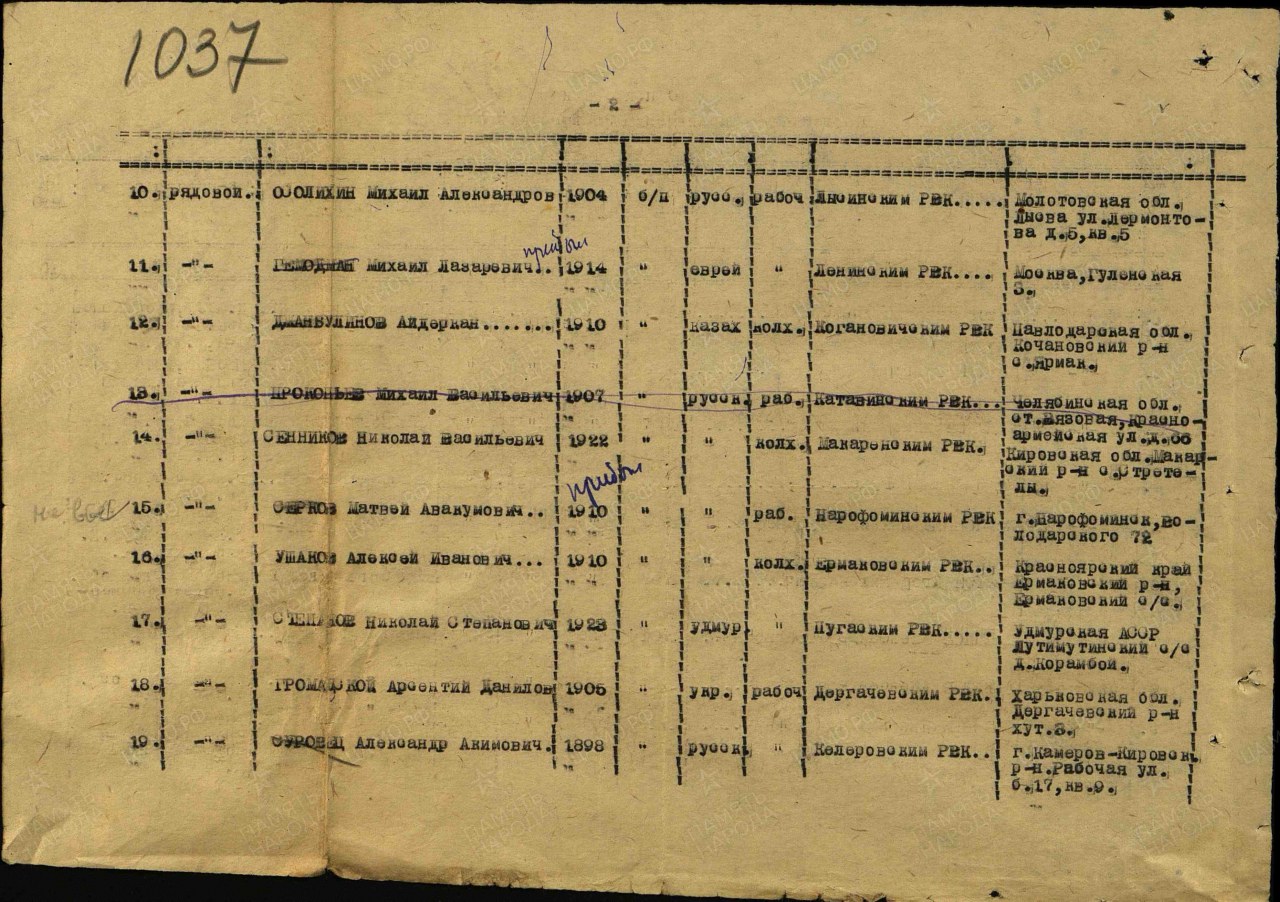 1037
- 2 -
10. рядовой. ОБОЛИХИН Михаил Александров 1904 б/п русс. рабоч Лысинским РВК..... Молотовская обл.
Лысва ул.Лермонто-
ва д.5,кв.5
прибыл
11. -"- Михаил Лазаревич.. 1914 " еврей " Ленинским РВК.... Москва,Гуленская
3.
12. -"- ДЖАНБУЛИНОВ Айдеркан....... 1910 " казах колх. Когановичским РВК Павлодарская обл.
Кочановский р-н
с.Ярмак.
13. -"- ПРОКОПЬЕВ Михаил Васильевич 1907 " русск. раб. Катавинским РВК... Челябинская обл.
ст.Вязовая,Красно-
армейская ул.д.66
14. -"- СЕННИКОВ Николай Васильевич 1922 " " колх. Макаренским РВК. Кировская обл.Макар-
ский р-н с.Стрете-
лы.
прибыл
не выб 15. -"- СЕРКОВ Матвей Авакумович.. 1910 " " раб. Нарофоминским РВК г.Нарофоминск,Во-
лодарского 72
16. -"- УШАКОВ Алексей Иванович... 1910 " " колх. Ермаковским РВК.. Красноярский край
Ермаковский р-н,
Ермаковский с/с.
17. -"- СТЕПАНОВ Николай Степанович 1923 " удмур " Пугаским РВК..... Удмурская АССР
Лутимутинский с/с
д.Корамбой.
18. -"- ГРОМАДСКОЙ Арсентий Данилов 1905 " укр. рабоч Дергачевским РВК. Харьковская обл.
Дергачевский р-н
хут.3.
19. -"- СУРОВЕЦ Александр Акимович. 1898 " русск " Келеровским РВК.. г.Камеров-Кировск.
р-н.Рабочая ул.
б.17,кв.9.